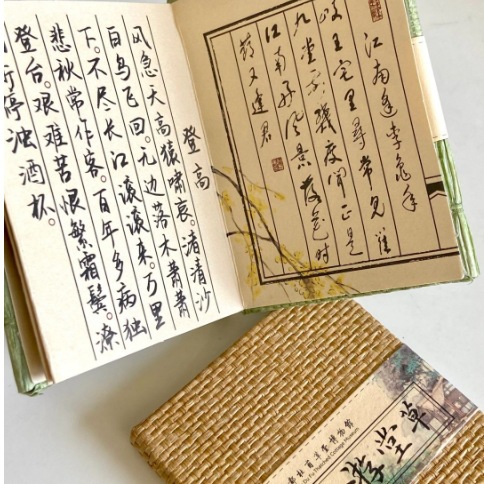 江南逢李龟年
岐王宅里尋常見崔
九堂前幾度聞正是
江南好風景落花時
節又逢君
登高
风急天高猿啸哀。渚清沙
白鸟飞回。无边落木萧萧
下。不尽长江滚滚来。万里
悲秋常作客。百年多病独
登台。艰难苦恨繁霜鬓。潦
新停浊酒杯。
杜甫草堂博物館
Du Fu Thatched Cottage Museum
草堂